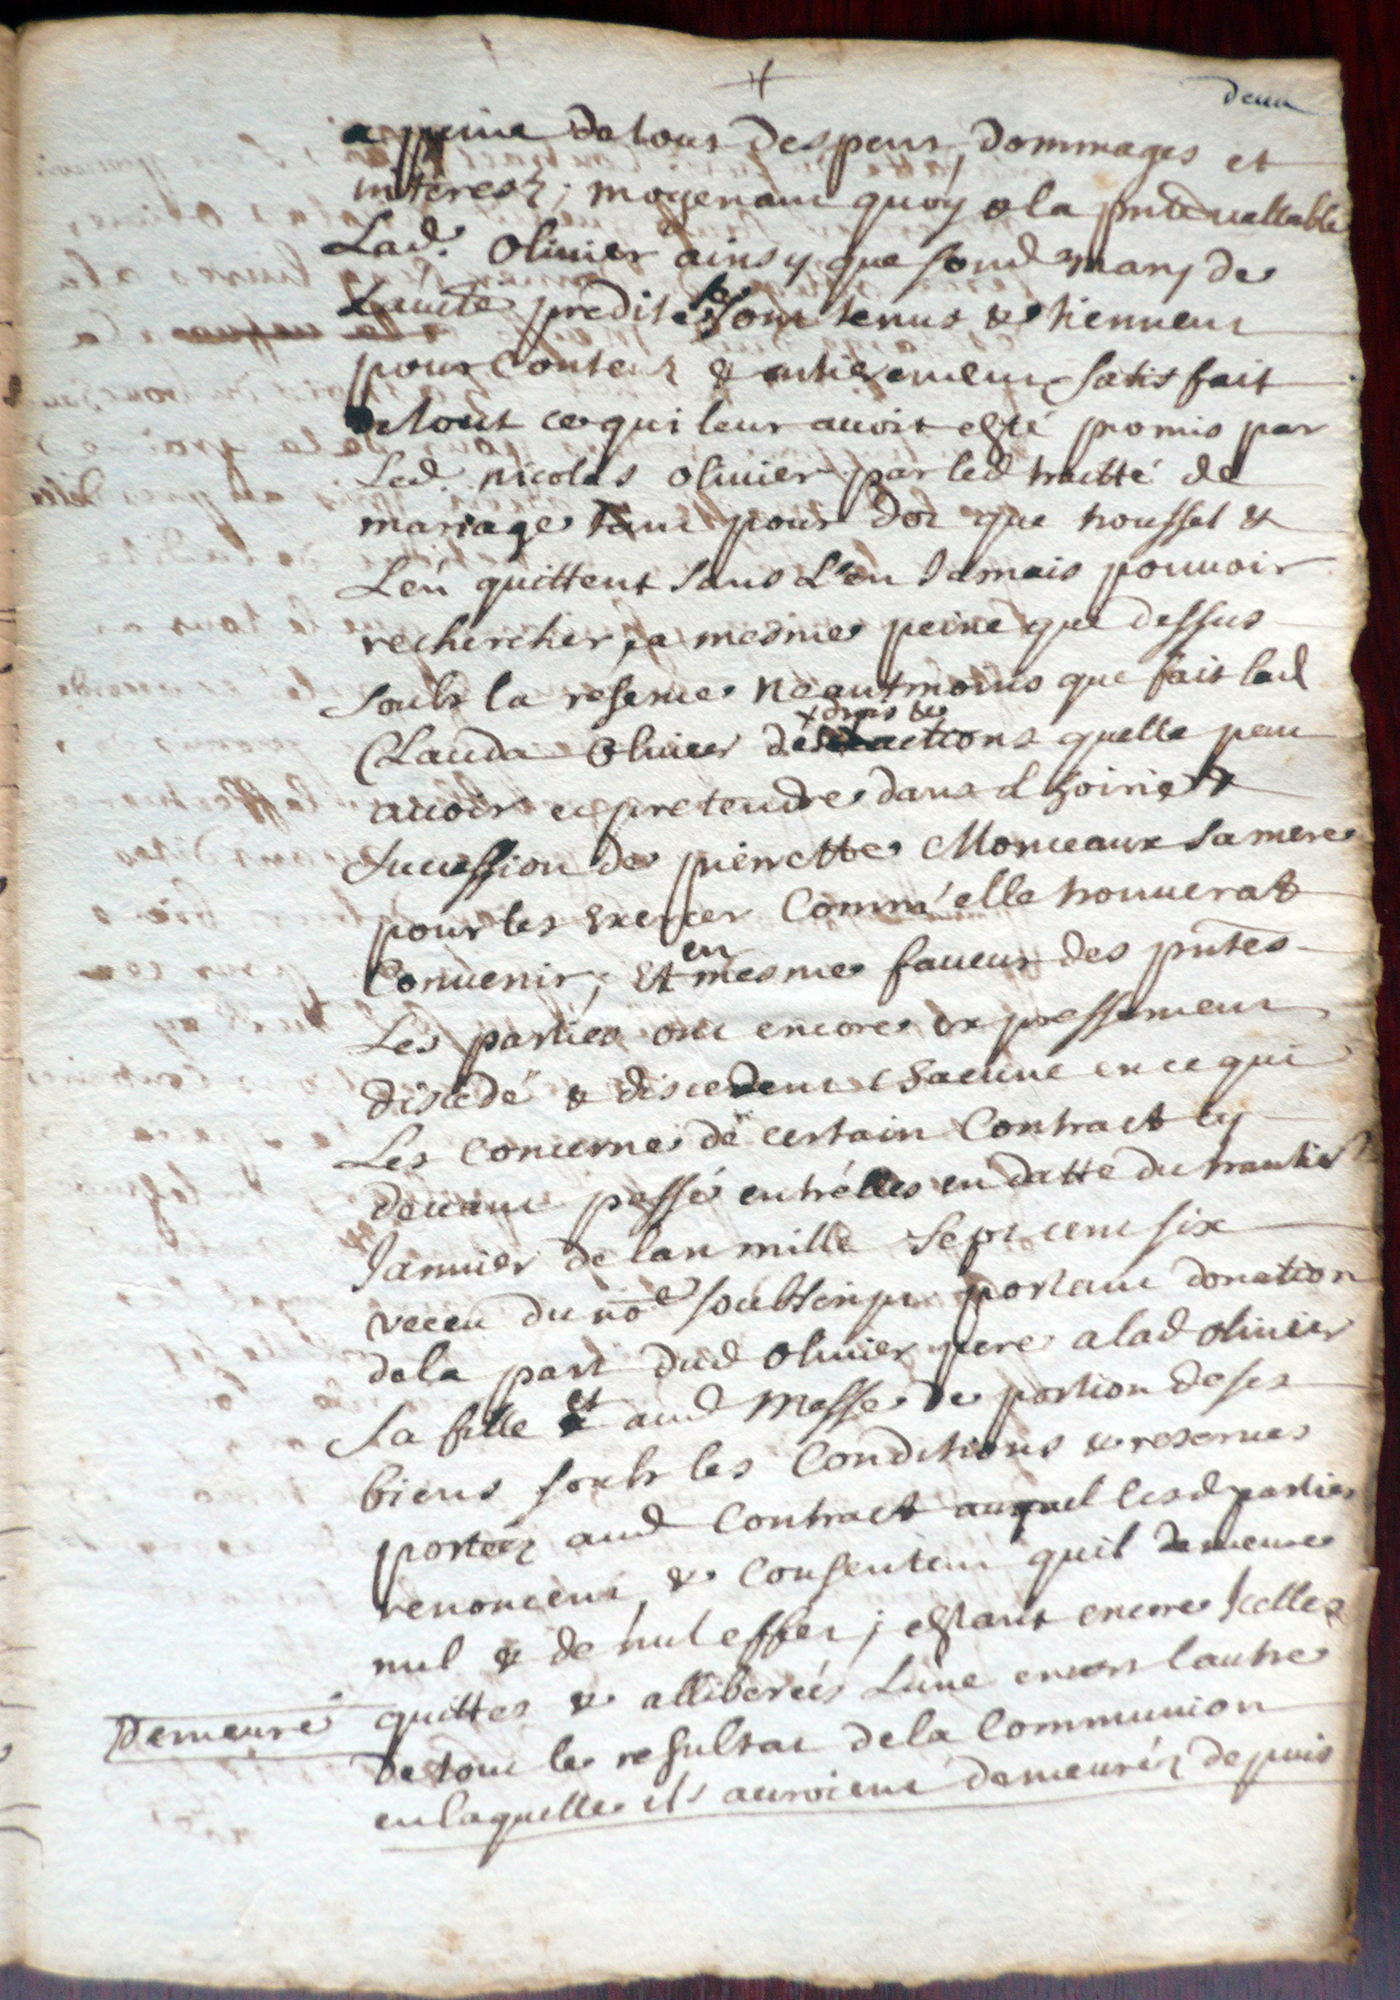 deux
a peine de tous despens, dommages et
interestz ; moyenant quoy & la pnte vallable
Lad. Olivier ainsy que sond mary de
Lauthé predit se sont tenus & tiennent
pour Contentz & entierement satisfait
de tout ce qui leur avoit esté promis par
Led. nicolas olivier par led traitté de
mariage tant pour dot que troussel &
L'en quittent sans l'en Jamais pouvoir
rechercher, a mesme peine que dessus
soubz la reserve neautmoins que fait lad
Clauda Olivier des x drois & actions quelle peut
avoir et pretendre dans l'hoirie &
succession de pierrette Monceaux sa mere
pour les exercer Comm'elle trouverat
Convenir ; Et en mesme faveur des pntes
Les parties ont encore expressement
discédé & discedent chacune en ce qui
Les concerne de certain Contract cy
devant passé entr'elles en datte du trantie
Janvier de lan mille sept cent six
receu du noe soubsigné portant donation
de la part dud olivier pere a lad olivier
sa fille et aud Masse de portion de ses
biens soubz les Conditions & reserves
portéez aud Contract auquel lesd parties
renoncent, & consentent quil demeure
nul & de nul effet ; estant encore Icellez
quittes & alliberées L'une envers l'autre
de tout le resultat de la Communion
en laquelle ils auroient demeuréz depuis
Demeuré